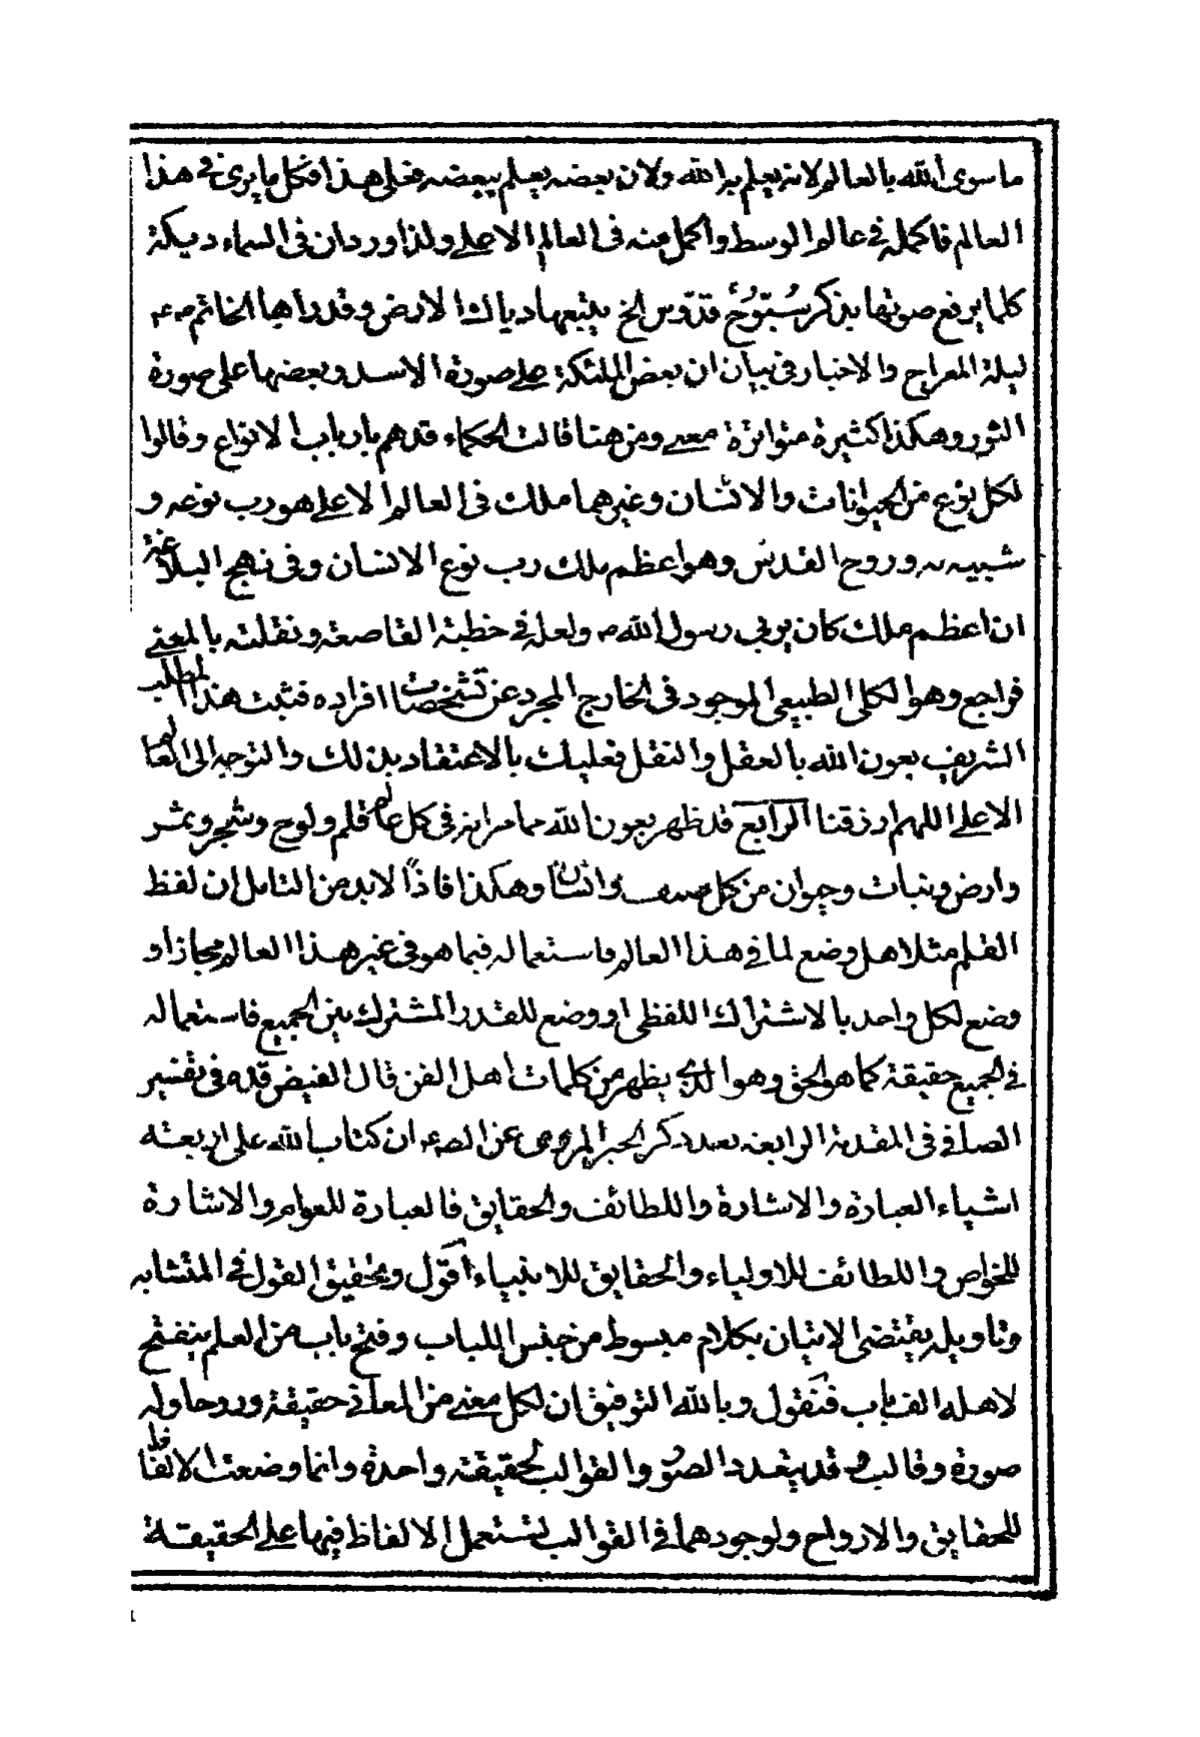 ما سوى الله بالعالم لانه يعلم به الله ولان بعضه يعلم ببعضه فعلى هذا فكل ما يرى في هذا
العالم فاكمله في عالم الوسط واكمل منه في العالم الاعلى ولذا ورد ان في السماء ديكة
كلما يرفع صوتها بذكر سُبّوُحٌ قدّوس الخ يتبعها دياك الارض وقد راها الخاتم ص ع
ليلة المعراج والاخبار في بيان ان بعض الملئكة على صورة الاسد وبعضها على صورة
الثور وهكذا كثيرة متواترة معنى ومن هنا قالت الحكماء قدهم بارباب الانواع وقالوا
لكل نوع من الحيوانات والانسان وغيرهما ملك في العالم الاعلى هو رب نوعه و
شبيه به وروح القدس وهو اعظم ملك رب نوع الانسان وفي نهج البلاغة
ان اعظم ملك كان يربي رسول الله ص ولعله في خطبة القاصعة ونقلته بالمعنى
فراجع وهو الكلى الطبيعى الموجود في الخارج المجرد عن تشخصات افراده فثبت هذا المطلب
الشريف بعون الله بالعقل والنقل فعليك بالاعتقاد بذلك والتوجه الى العالم
الاعلى اللهم ارزقنا الرابع قد ظهر بعون الله مما مر انه في كل عالم قلم ولوح وشجر وثمر
وارض ونبات وحيوان من كل صنف وانسان وهكذا فاذاً لابد من التامل ان لفظ
القلم مثلا هل وضع لما في هذا العالم فاستعماله فيما هو في غير هذا العالم مجاز او
وضع لكل واحد بالاشتراك اللفظى او وضع للقدر المشترك بين الجميع فاستعماله
في الجميع حقيقة كما هو الحق وهو الذي يظهر من كلمات اهل الفن قال الفيض قده في تفسير
الصافي في المقدمة الرابعة بعد ذكر الخبر المروى عن الص ع ان كتاب الله على اربعة
اشياء العبارة والاشارة واللطائف والحقايق فالعبارة للعوام والاشارة
للخواص واللطائف للاولياء والحقايق للانبياء اقول وتحقيق القول في المتشابه
وتاويله يقتضى الاتيان بكلام مبسوط من جنس اللباب وفتح باب من العلم ينفتح
لاهله الف باب فنقول وبالله التوفيق ان لكل معنى من المعاني حقيقة وروحا وله
صورة وقالب وقد يتعدد الصور والقوالب لحقيقة واحدة وانما وضعت الالفاظ
للحقايق والارواح ولوجودهما في القوالب تستعمل الالفاظ فيها على الحقيقة